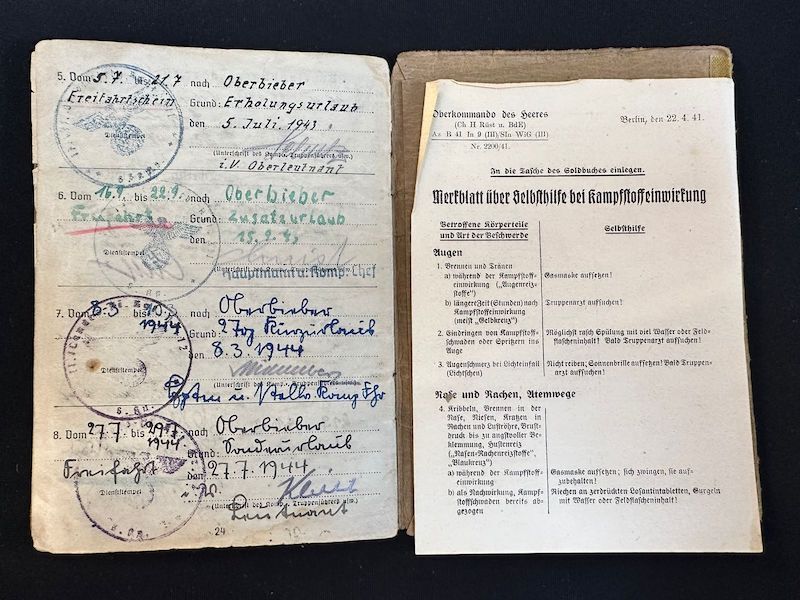 5. Vom 5.7. bis 21.7 nach Oberbieber
Freifahrtschein Grund: Erholungsurlaub
den 5. Juli. 1943
Dienststempel
(Unterschrift des Komp. Truppenführers usw.)
i.V. Oberleutnant
6. Vom 16.9. bis 22.9. nach Oberbieber
Freifahrt Grund: Zusatzurlaub
den 15.9.43
Dienststempel
(Unterschrift des Komp. Truppenführers usw.)
Hauptmann u. Komp. Chef
7. Vom 8.3 10.3 nach Oberbieber
1944 Grund: 2 Tg Kurzurlaub
8.3.1944
Dienststempel
(Unterschrift des Komp. Truppenführers usw.)
8. Vom 27.7 bis 29.7 nach Oberbieber
1944 Sonderurlaub
Freifahrt den 27.7.1944
Dienststempel
Leutnant
(Unterschrift des Komp. Truppenführers usw.)
24
Oberkommando des Heeres
(Ch H Rüst u. BdE)
Az B 41 In 9 (III)/SIn WiG (IB)
Nr. 2200/41.
Berlin, den 22.4.41.
In die Tasche des Soldbuches einlegen.
Merkblatt über Selbsthilfe bei Kampfstoffeinwirkung
Betroffene Körperteile
und Art der Beschwerde
Selbsthilfe
Augen
1. Brennen und Tränen
a) während der Kampfstoff-
einwirkung („Augenreiz-
stoffe“)
Gasmaske aufsetzen!
b) längere Zeit (Stunden) nach
Kampfstoffeinwirkung
(meist „Gelbkreuz“)
Truppenarzt aufsuchen!
2. Eindringen von Kampfstoff-
schwaden oder Spritzern ins
Auge
Möglichst rasch Spülung mit viel Wasser oder Feld-
flascheninhalt! Bald Truppenarzt aufsuchen!
3. Augenschmerz bei Lichteinfall
(Lichtscheu)
Nicht reiben; Sonnenbrille aufsetzen! Bald Truppen-
arzt aufsuchen!
Nase und Rachen, Atemwege
4. Kribbeln, Brennen in der
Nase, Niesen, Kratzen in
Rachen und Luftröhre, Brust-
druck bis zu angstvoller Be-
klemmung, Hustenreiz
(„Nasen-Rachenreizstoffe“,
„Blaukreuz“)
a) während der Kampfstoff-
einwirkung
Gasmaske aufsetzen; sich zwingen, sie auf-
zubehalten!
b) als Nachwirkung, Kampf-
stoffschwaden bereits ab-
gezogen
Riechen an zerdrückten Losantintabletten, Gurgeln
mit Wasser oder Feldflascheninhalt!